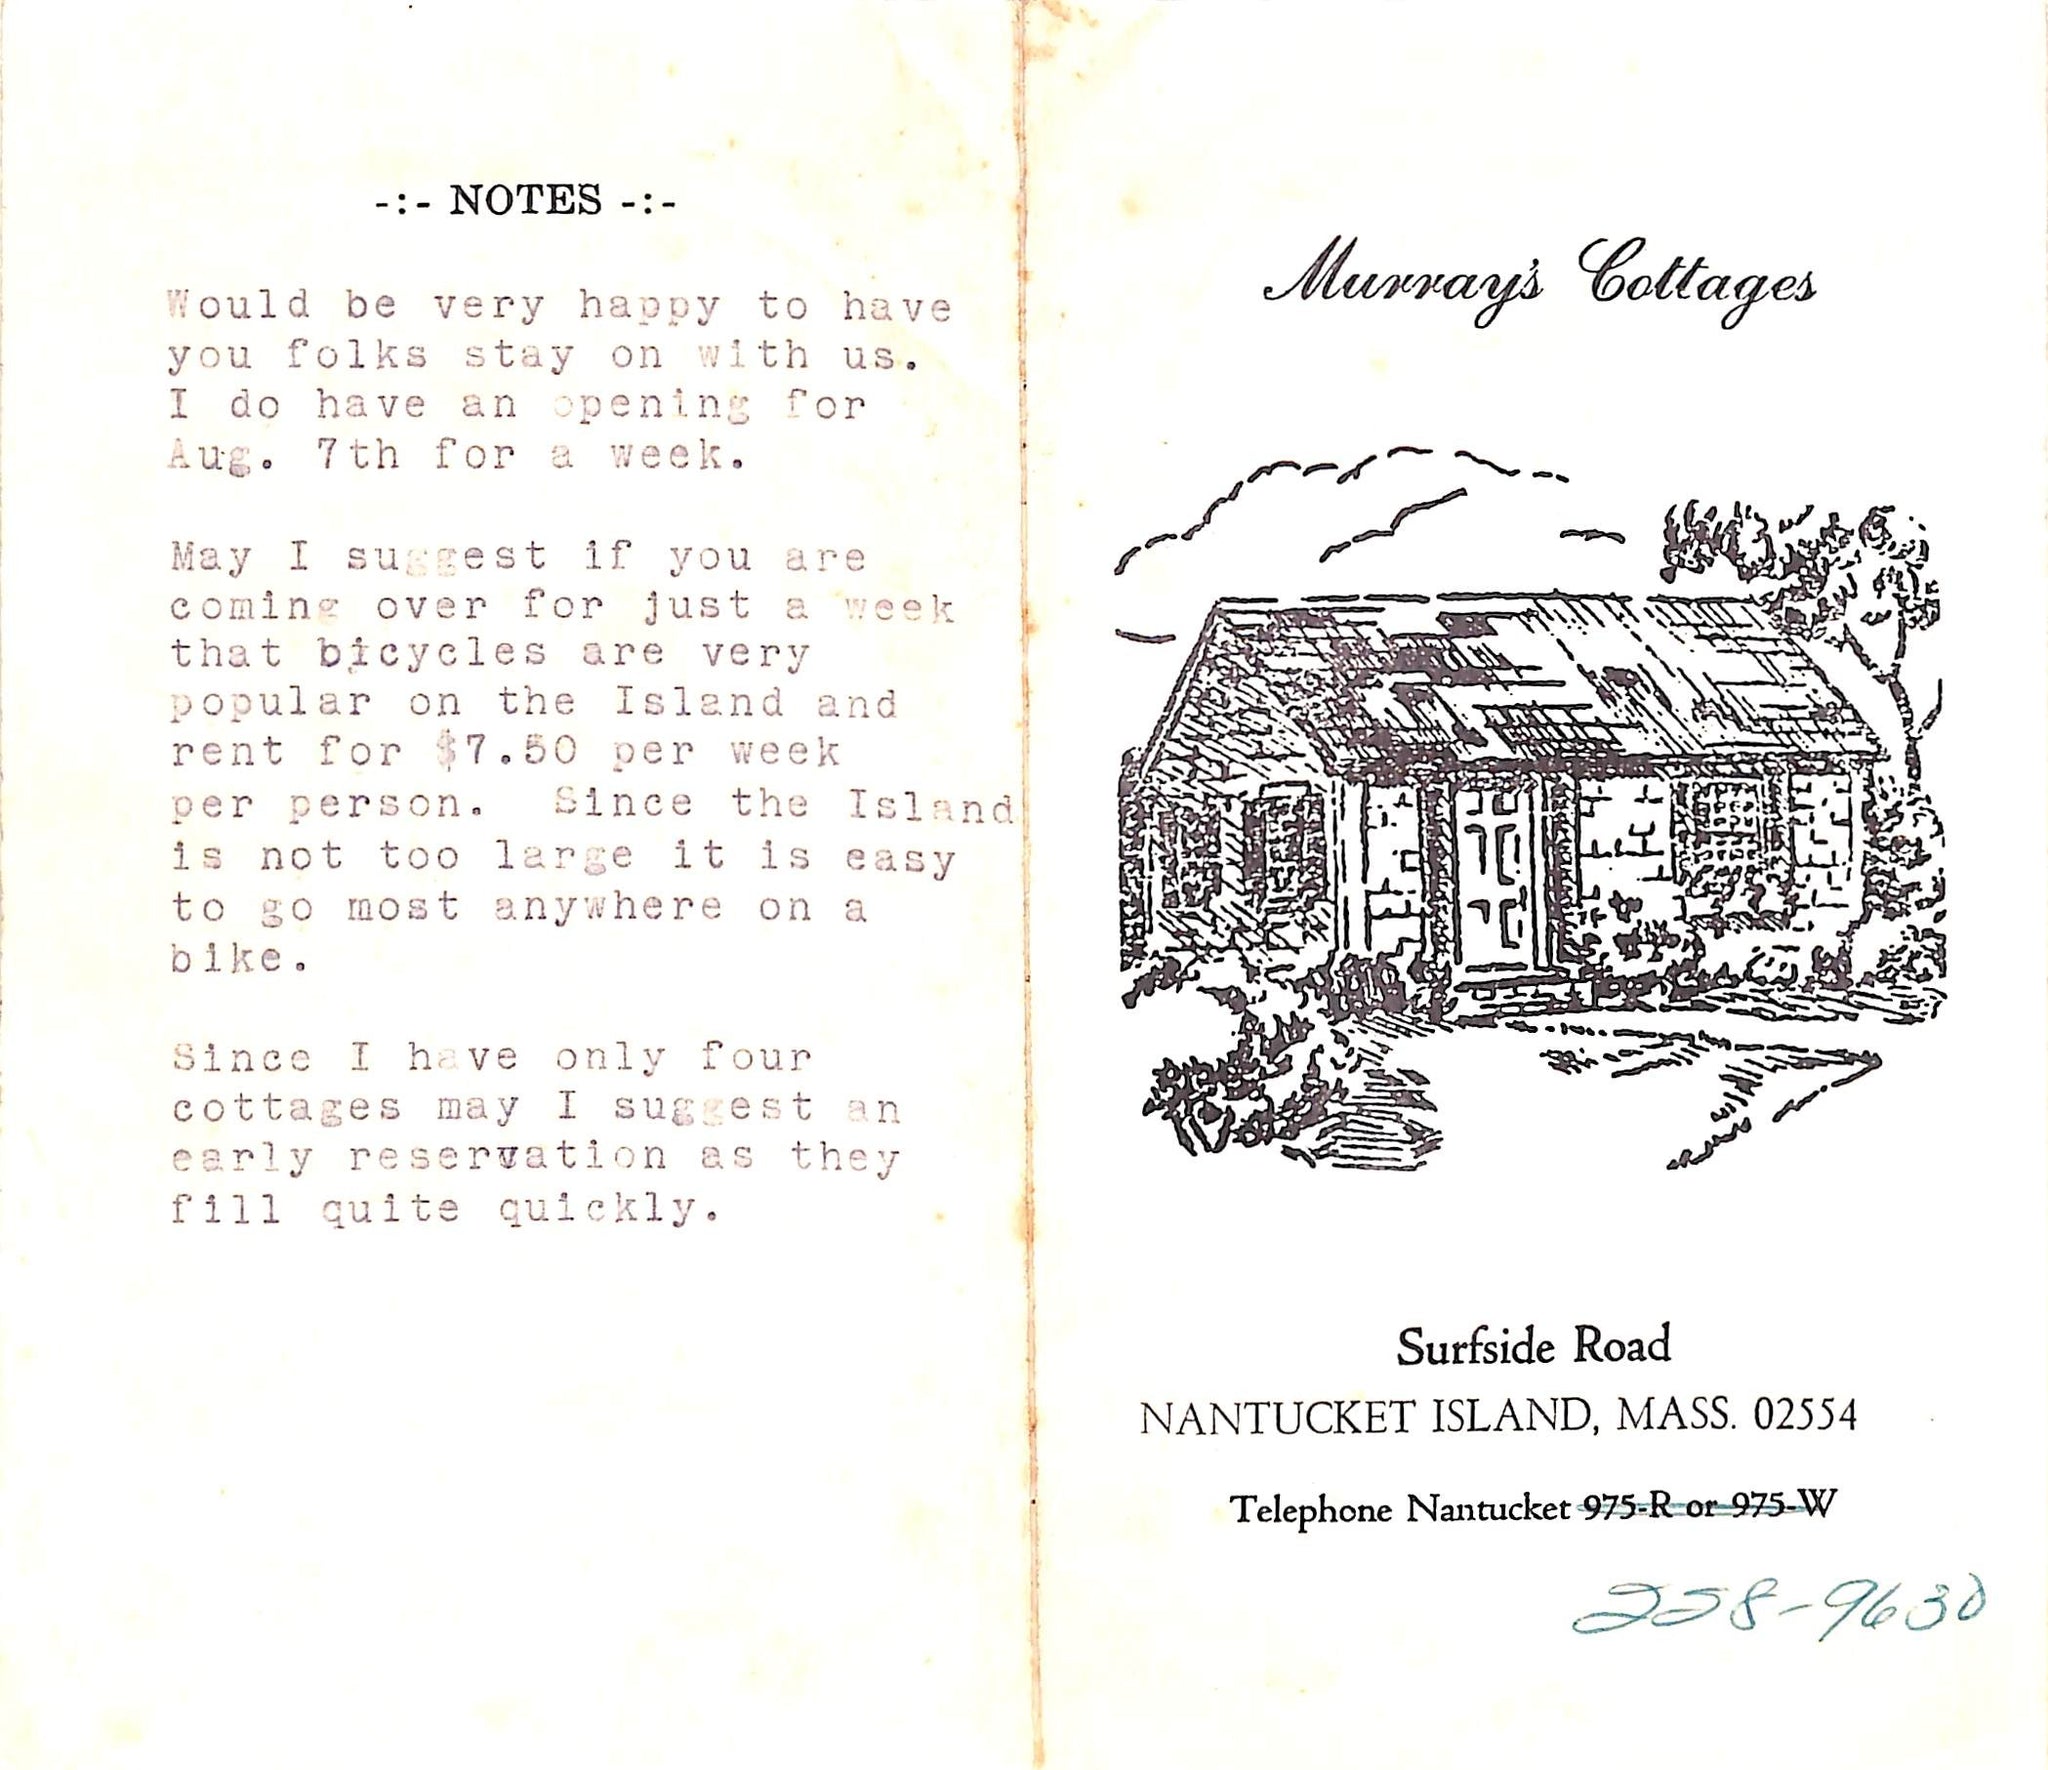 -:- NOTES -:-
Would be very happy to have
you folks stay on with us.
I do have an opening for
Aug. 7th for a week.
May I suggest if you are
coming over for just a week
that bicycles are very
popular on the Island and
rent for $7.50 per week
per person. Since the Island
is not too large it is easy
to go most anywhere on a
bike.
Since I have only four
cottages may I suggest an
early reservation as they
fill quite quickly.
Murray's Cottages
Surfside Road
NANTUCKET ISLAND, MASS. 02554
Telephone Nantucket 975-R or 975-W
228-9630